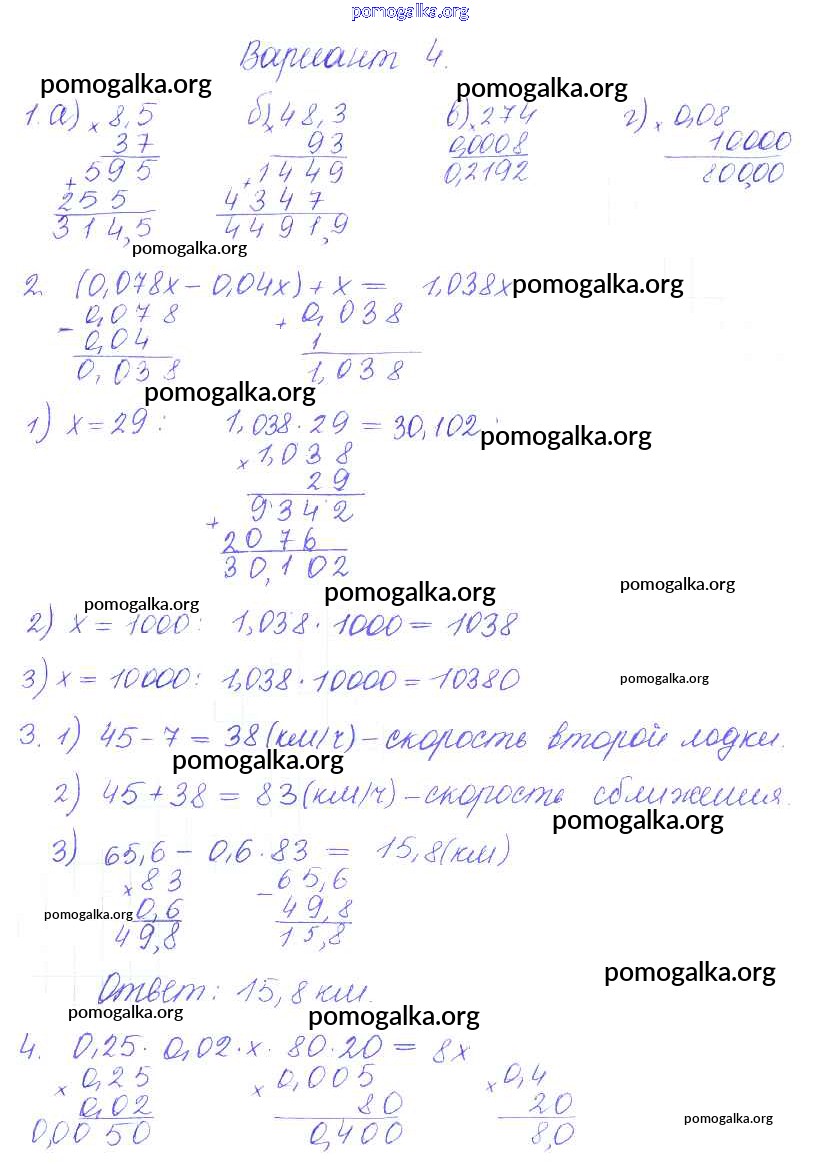 pomogalka.org
Вариант 4.
pomogalka.org pomogalka.org
1. а) × 8,5 б) × 48,3 в) × 274 г) × 0,08
37 93 0,0008 10000
+ 595 + 1449 0,2192 800,00
255 4347
314,5 4491,9
pomogalka.org
2. (0,078x − 0,04x) + x = 1,038x pomogalka.org
− 0,078 + 0,038
0,04 1
0,038 1,038
pomogalka.org
1) x = 29 : 1,038 · 29 = 30,102 pomogalka.org
× 1,038
29
+ 9342
2076
30,102
pomogalka.org pomogalka.org pomogalka.org
2) x = 1000 : 1,038 · 1000 = 1038
3) x = 10000 : 1,038 · 10000 = 10380 pomogalka.org
3. 1) 45 − 7 = 38 (км/ч) − скорость второй лодки.
pomogalka.org
2) 45 + 38 = 83 (км/ч) − скорость сближения.
pomogalka.org
3) 65,6 − 0,6 · 83 = 15,8 (км)
× 83 − 65,6
pomogalka.org 0,6 49,8
49,8 15,8
pomogalka.org
Ответ: 15,8 км.
pomogalka.org pomogalka.org
4. 0,25 · 0,02 · x · 80 · 20 = 8x
× 0,25 × 0,005 × 0,4
0,02 80 20
pomogalka.org
0,0050 0,400 8,0